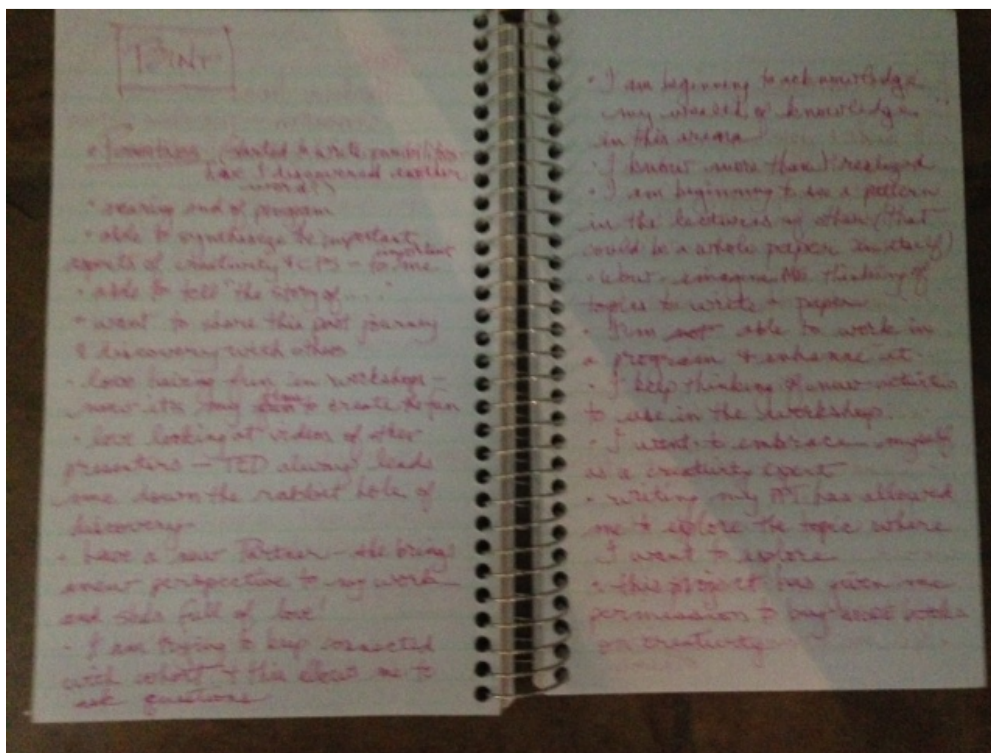 POINT
(wanted to write possibilities
I discovered another
word!)
• nearing end of program
• able to synthesize the important
aspects of creativity & CPS – important to me
• able to tell "the story of....."
• want to share this past journey
& discovery with others
• love having fun in workshops –
now it's my time to create the fun
• love looking at videos of other
presenters – TED always leads
me down the rabbit hole of
discovery
• have a new Partner – she brings
a new perspective to my work
and she's full of love!
• I am trying to keep connected
with cohort & this allows me to
ask questions
• I am beginning to acknowledge
my wealth of knowledge
in this arena
• I know more than I realized
• I am beginning to see a pattern
in the lectures of other (that
could be a whole paper in itself)
• wow, imagine ME thinking of
topics to write a paper
• I'm not able to work in
a program & enhance it
• I keep thinking of new activities
to use in the workshop
• I want to embrace myself
as a creativity expert
• writing my PPT has allowed
me to explore the topic where
I want to explore
• this project has given me
permission to buy more books
on creativity